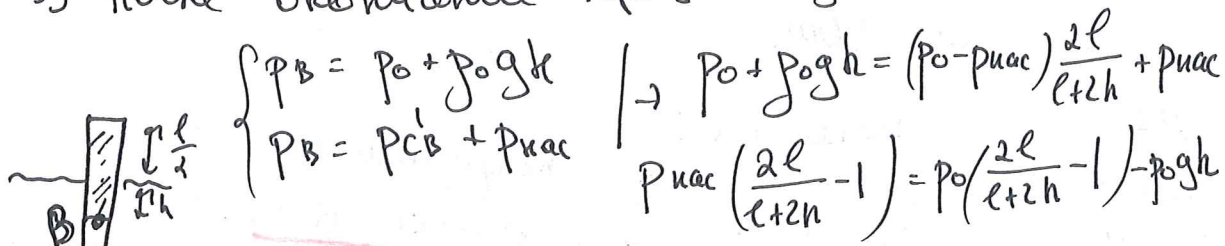 после
{ pB = p0 + ρ0gh
pB = pc'в + pнас
| → p0 + ρ0gh = (p0 - pнас) 2l/(l+2h) + pнас
pнас (2l/(l+2h) - 1) = p0 (2l/(l+2h) - 1) - ρ0gh
l/2
h
B